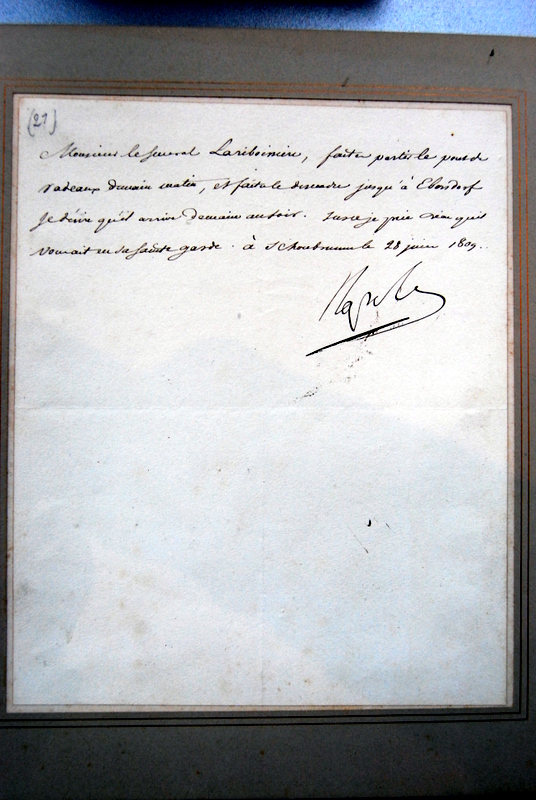 (21)
Monsieur le General Lariboissiere, faites partir le pont de
radeaux demain matin, et faites le descendre jusqu'à Ebersdorf
Je desire qu'il arrive demain au soir. Sur ce je prie Dieu qu'il
vous ait en sa sainte garde. à Schoenbrunn le 28 juin 1809.
Napole